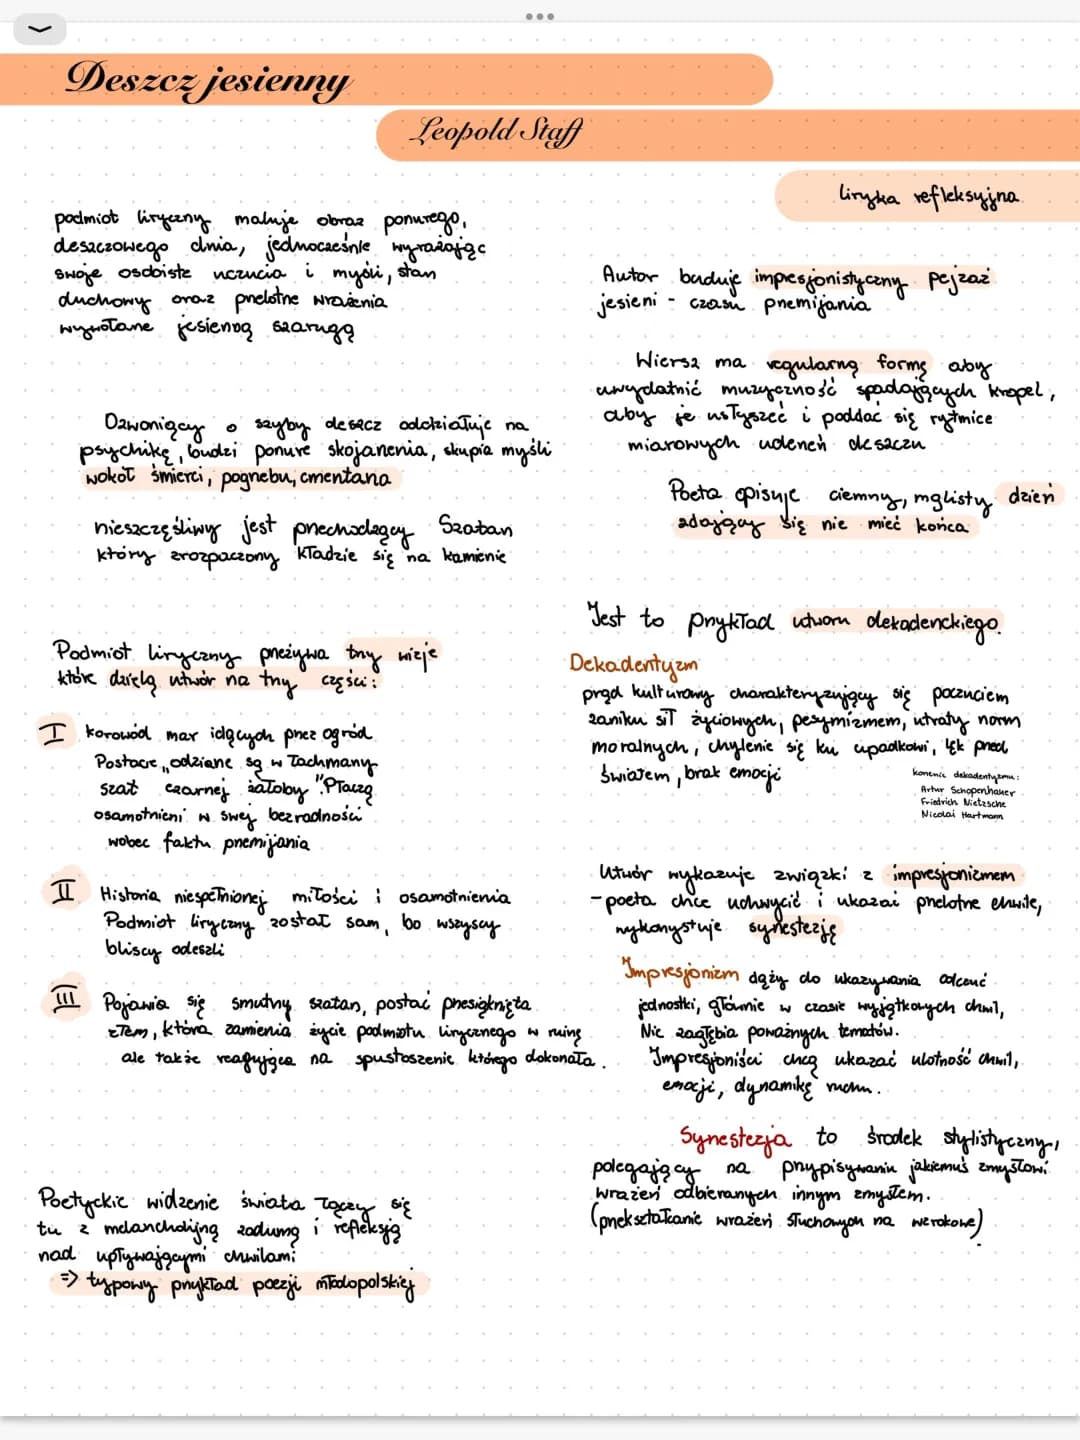 Deszcz jesienny
Leopold Staff
liryka refleksyjna
podmiot liryczny maluje obraz ponurego,
deszczowego dnia, jednocześnie wyrażając
swoje osobiste uczucia i myśli, stan
duchowy oraz przelotne wrażenia
wywołane jesienną szarugą
Dzwoniący o szyby deszcz oddziałuje na
psychikę, budzi ponure skojarzenia, skupia myśli
wokół śmierci, pogrzebu, cmentarza
nieszczęśliwy jest przechodzący Szatan
który zrozpaczony kładzie się na kamienie
Podmiot liryczny przeżywa trzy wizje
które dzielą utwór na trzy części:
I korowód mar idących przez ogród
Postacie „odziane są w łachmany
szat czarnej żałoby". Płaczą
osamotnieni w swej bezradności
wobec faktu przemijania
II Historia niespełnionej miłości i osamotnienia
Podmiot liryczny został sam, bo wszyscy
bliscy odeszli
III Pojawia się smutny szatan, postać przesiąknięta
złem, która zamienia życie podmiotu lirycznego w ruinę
ale także reagująca na spustoszenie którego dokonała.
Poetyckie widzenie świata łączy się
tu z melancholijną zadumą i refleksją
nad upływającymi chwilami
=> typowy przykład poezji młodopolskiej
Autor buduje impresjonistyczny pejzaż
jesieni - czasu przemijania
Wiersz ma regularną formę aby
uwydatnić muzyczność spadających kropel,
aby je usłyszeć i poddać się rytmice
miarowych uderzeń deszczu
Poeta opisuje ciemny, mglisty dzień
zdający się nie mieć końca
Jest to przykład utworu dekadenckiego.
Dekadentyzm
prąd kulturowy charakteryzujący się poczuciem
zaniku sił życiowych, pesymizmem, utraty norm
moralnych, chylenie się ku upadkowi, lęk przed
światem, brak emocji
korzenie dekadentyzmu:
Artur Schopenhauer
Friedrich Nietzsche
Nicolai Hartmann
Utwór wykazuje związki z impresjonizmem
- poeta chce uchwycić i ukazać przelotne chwile,
wykorzystuje synestezję
Impresjonizm dąży do ukazywania odczuć
jednostki, głównie w czasie wyjątkowych chwil,
Nie zagłębia poważnych tematów.
Impresjoniści chcą ukazać ulotność chwil,
emocji, dynamikę ruchu.
Synestezja to środek stylistyczny,
polegający na przypisywaniu jakiemuś zmysłowi
wrażeń odbieranych innym zmysłem.
(przekształcanie wrażeń słuchowych na wzrokowe)